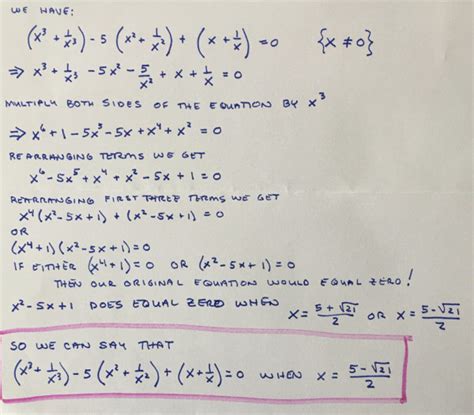 WE HAVE:
(x³ + 1/x³) - 5 (x² + 1/x²) + (x + 1/x) = 0 {x ≠ 0}
⇒ x³ + 1/x³ - 5x² - 5/x² + x + 1/x = 0
MULTIPLY BOTH SIDES OF THE EQUATION BY x³
⇒ x⁶ + 1 - 5x⁵ - 5x + x⁴ + x² = 0
REARRANGING TERMS WE GET
x⁶ - 5x⁵ + x⁴ + x² - 5x + 1 = 0
REARRANGING FIRST THREE TERMS WE GET
x⁴(x² - 5x + 1) + (x² - 5x + 1) = 0
OR
(x⁴ + 1)(x² - 5x + 1) = 0
IF EITHER (x⁴ + 1) = 0 OR (x² - 5x + 1) = 0
THEN OUR ORIGINAL EQUATION WOULD EQUAL ZERO!
x² - 5x + 1 DOES EQUAL ZERO WHEN x = 5 + √21/2 OR x = 5 - √21/2
SO WE CAN SAY THAT
(x³ + 1/x³) - 5 (x² + 1/x²) + (x + 1/x) = 0 WHEN x = 5 - √21/2